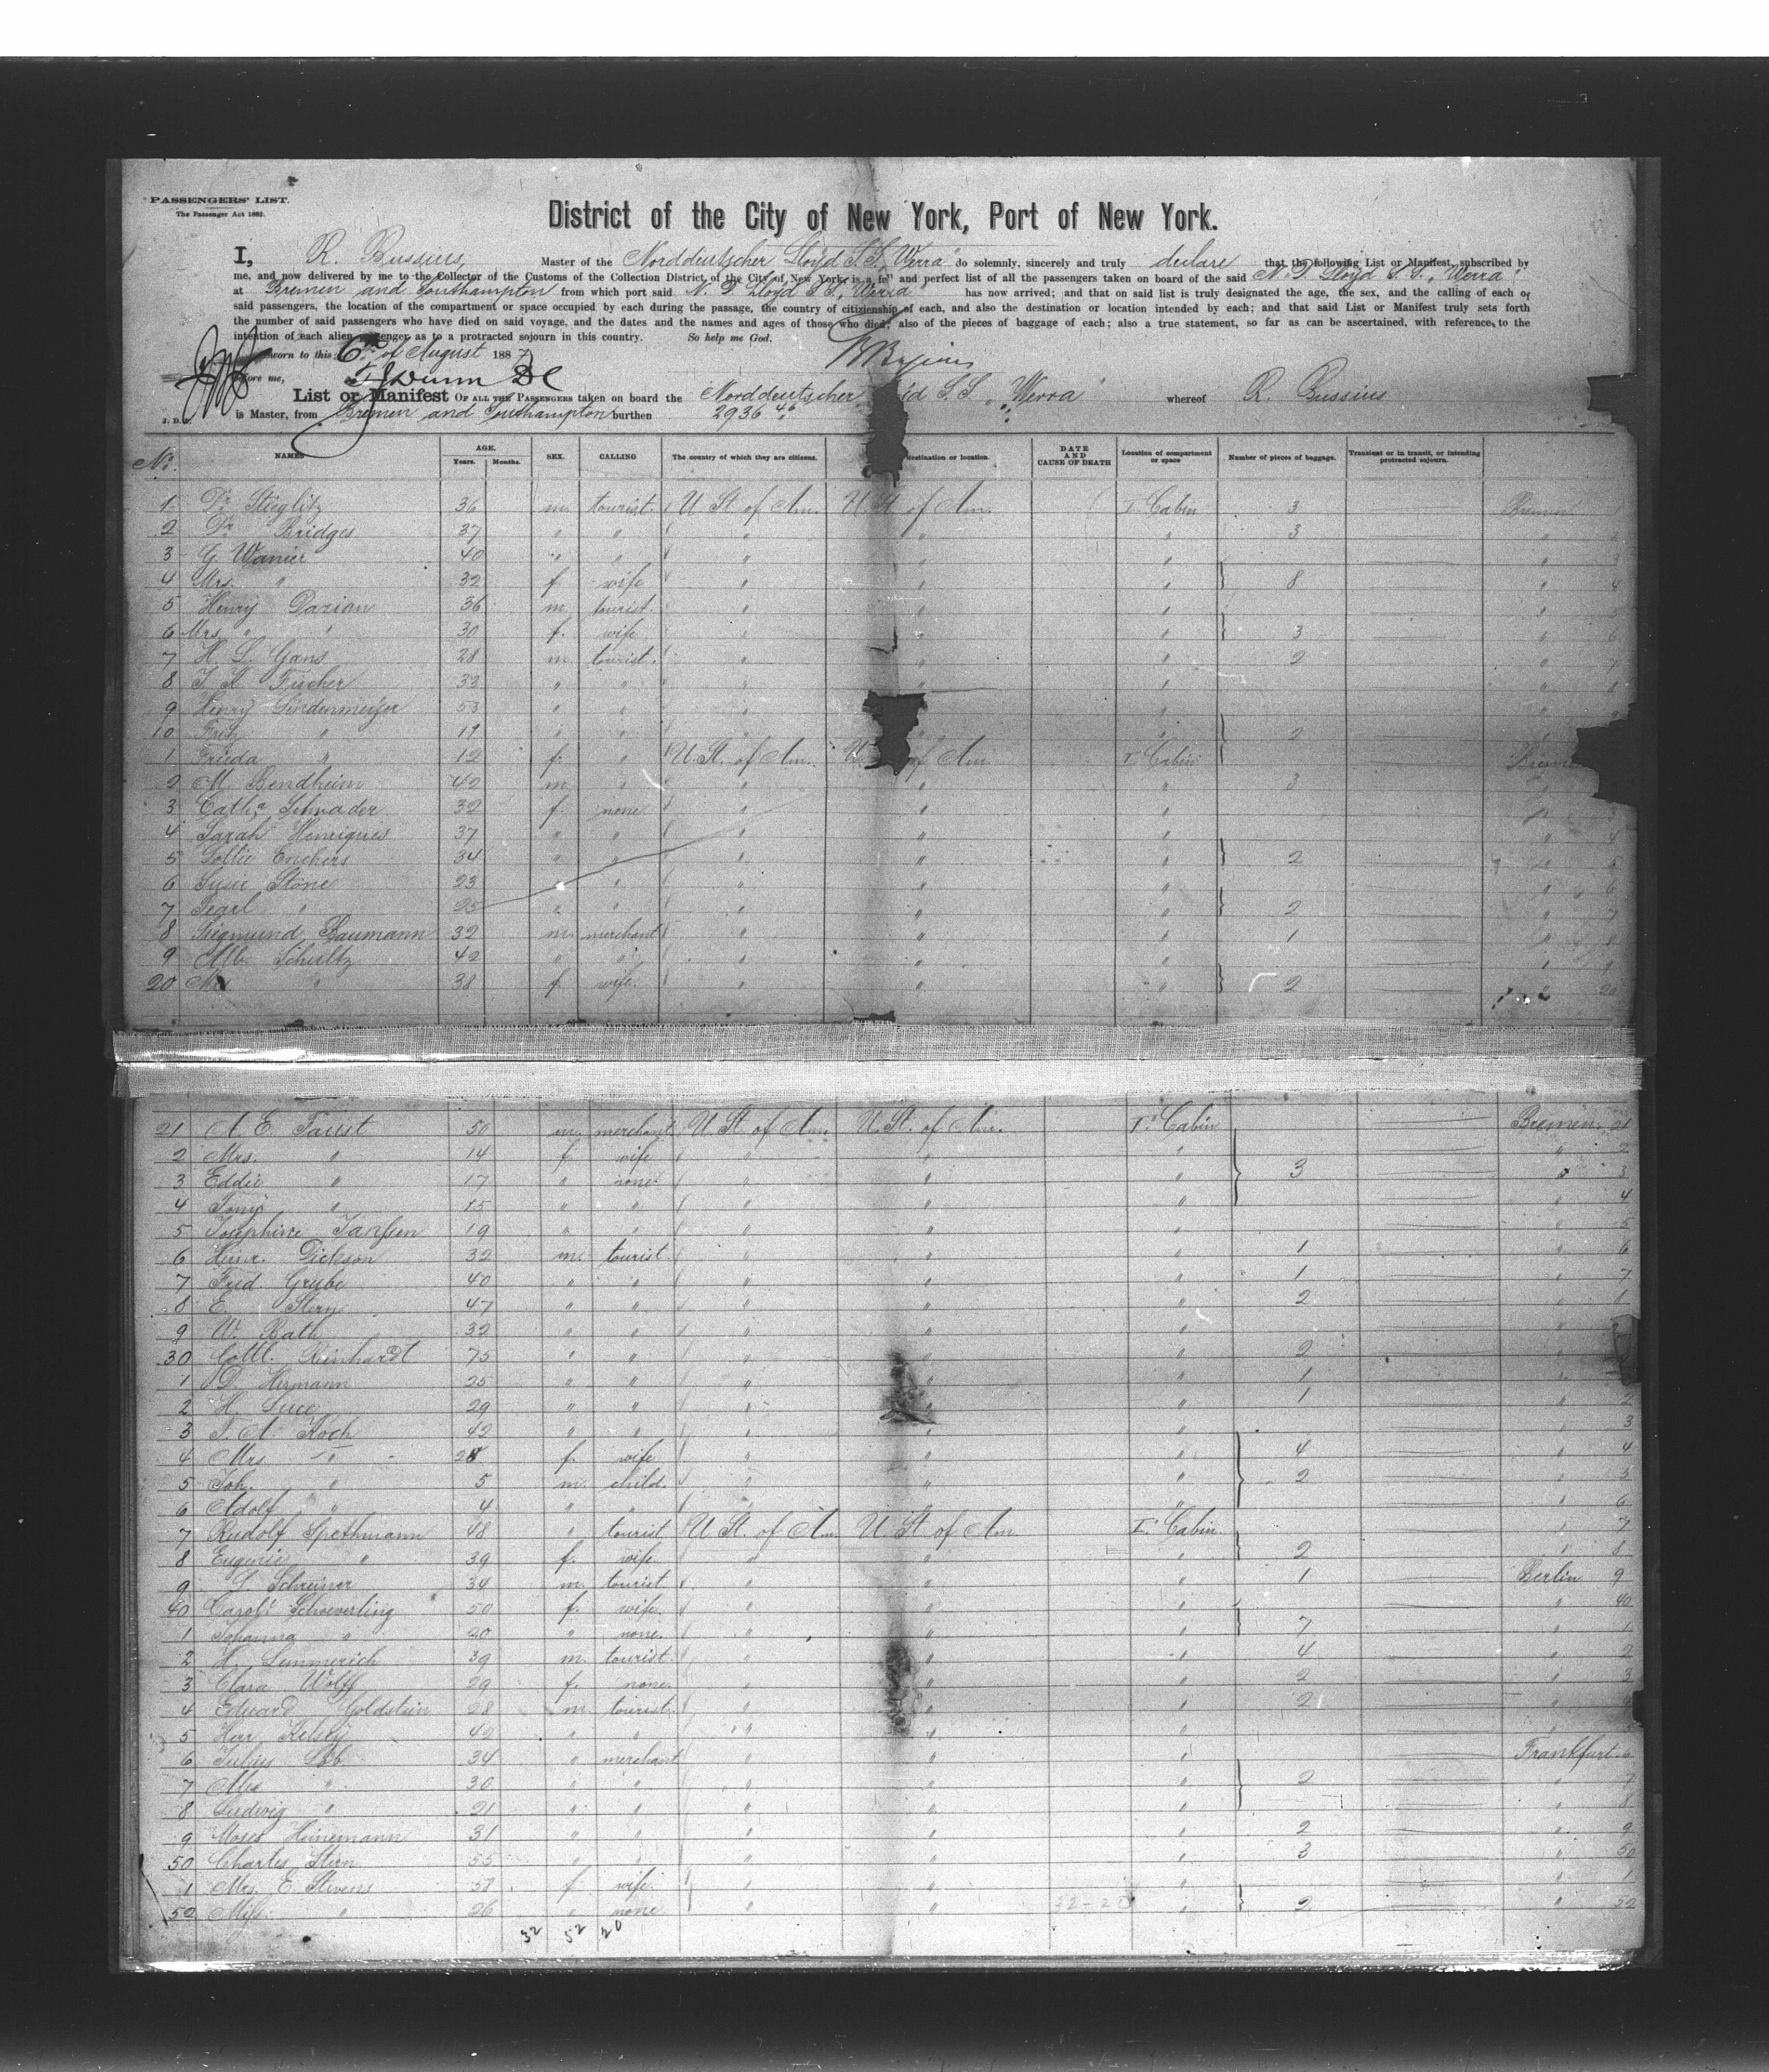 PASSENGERS' LIST.
The Passenger Act 1882.
District of the City of New York, Port of New York.
I, R. Bussius, Master of the Norddeutscher Lloyd S.S. "Werra" do solemnly, sincerely and truly declare that the following List or Manifest, subscribed by
me, and now delivered by me to the Collector of the Customs of the Collection District of the City of New York, is a full and perfect list of all the passengers taken on board of the said N. D. Lloyd S.S. "Werra"
at Bremen and Southampton from which port said N. D. Lloyd S.S. "Werra" has now arrived; and that on said list is truly designated the age, the sex, and the calling of each of
said passengers, the location of the compartment or space occupied by each during the passage, the country of citizenship of each, and also the destination or location intended by each; and that said List or Manifest truly sets forth
the number of said passengers who have died on said voyage, and the dates and the names and ages of those who died; also of the pieces of baggage of each; also a true statement, so far as can be ascertained, with reference to the
intention of each alien passenger as to a protracted sojourn in this country. So help me God.
Sworn to this 6th of August 1887
before me,
List or Manifest OF ALL THE PASSENGERS taken on board the Norddeutscher S.S. "Werra" whereof R. Bussius
is Master, from Bremen and Southampton burthen 2936
No. NAMES AGE. Years. Months. SEX. CALLING The country of which they are citizens. destination or location. DATE AND CAUSE OF DEATH Location of compartment or space Number of pieces of baggage. Transient or in transit, or intending protracted sojourn.
1 Dr. Stieglitz 36 m. tourist. U. St. of Am. U. St. of Am. I Cabin 3 Bremen 1
2 Dr. Bridges 37 " " " " " 3 " 2
3 G. Wanier 40 " " " " " " 3
4 Mrs. " 32 f. wife " " " 8 " 4
5 Henry Darian 36 m. tourist. " " " " 5
6 Mrs. " 30 f. wife " " " 3 " 6
7 H. L. Gans 28 m. tourist. " " " 2 " 7
8 Fischer 32 " " " " " " 8
9 Henry Lindenmeyer 53 " " " " "
10 " 19 " " " " 2
1 Frieda " 12 f. " U. St. of Am. of Am. I Cabin Breme
2 M. Bendheim 42 m. " " " " 3
3 Cath. Schrader 32 f. none " " " " 3
4 Sarah Henriques 37 " " " " " " 4
5 34 " " " " " 2 " 5
6 Susie Stone 23 " " " " " " 6
7 Pearl " 25 " " " " " 2 " 7
8 Siegmund Baumann 32 m. merchant " " " 1 " 8
9 Alb. Schultz 42 " " " " " " 9
20 " 38 f. wife. " " " 2 " 20
21 A. E. Faust 50 m. merchant U. St. of Am. U. St. of Am. I. Cabin Bremen. 21
2 Mrs. " 14 f. wife " " " " 2
3 Eddie " 17 " none. " " " 3 " 3
4 Tony " 15 " " " " " " 4
5 Josephine Janssen 19 " " " " " " 5
6 Heinr. Dickson 32 m. tourist. " " " 1 " 6
7 Fred. Grube 40 " " " " " 1 " 7
8 E. Stern 47 " " " " " 2 "
9 W. Bath 32 " " " " " "
30 Gottl. Reinhardt 75 " " " " " 2
1 D. Hermann 25 " " " " " 1 "
2 H. Luce 29 " " " " " 1 " 2
3 A. Koch 42 " " " " " " 3
4 Mrs. " 28 f. wife " " " 4 " 4
5 Joh. " 5 m. child. " " " 2 " 5
6 Adolf " 4 " " " " " " 6
7 Rudolf Spethmann 48 " tourist U. St. of Am. U. St of Am. I. Cabin. " 7
8 Eugenie " 39 f. wife " " " 2 " 8
9 L. Schreiner 34 m. tourist. " " " 1 Berlin 9
40 Carol. Schoeverling 50 f. wife. " " " " 40
1 Johanna " 20 " none. " " " 7 " 1
2 H. Lemmerich 39 m. tourist. " " " 4 " 2
3 Clara Wolff 29 f. none. " " " 2 " 3
4 Eduard Goldstein 28 m. tourist. " " " 2 "
5 Kelsey 42 " " " " " "
6 Julius 34 " merchant " " " Frankfurt 6
7 " 30 " " " " " 2 " 7
8 Ludwig " 21 " " " " " " 8
9 Moses Heinemann 31 " " " " " 2 " 9
50 Charles Stern 55 " " " " " 3 " 50
1 Mrs. E. Stevens 58 f. wife. " " " " 1
52 Miss. " 26 " none " " 32-20 " 2 " 52
32 52 20